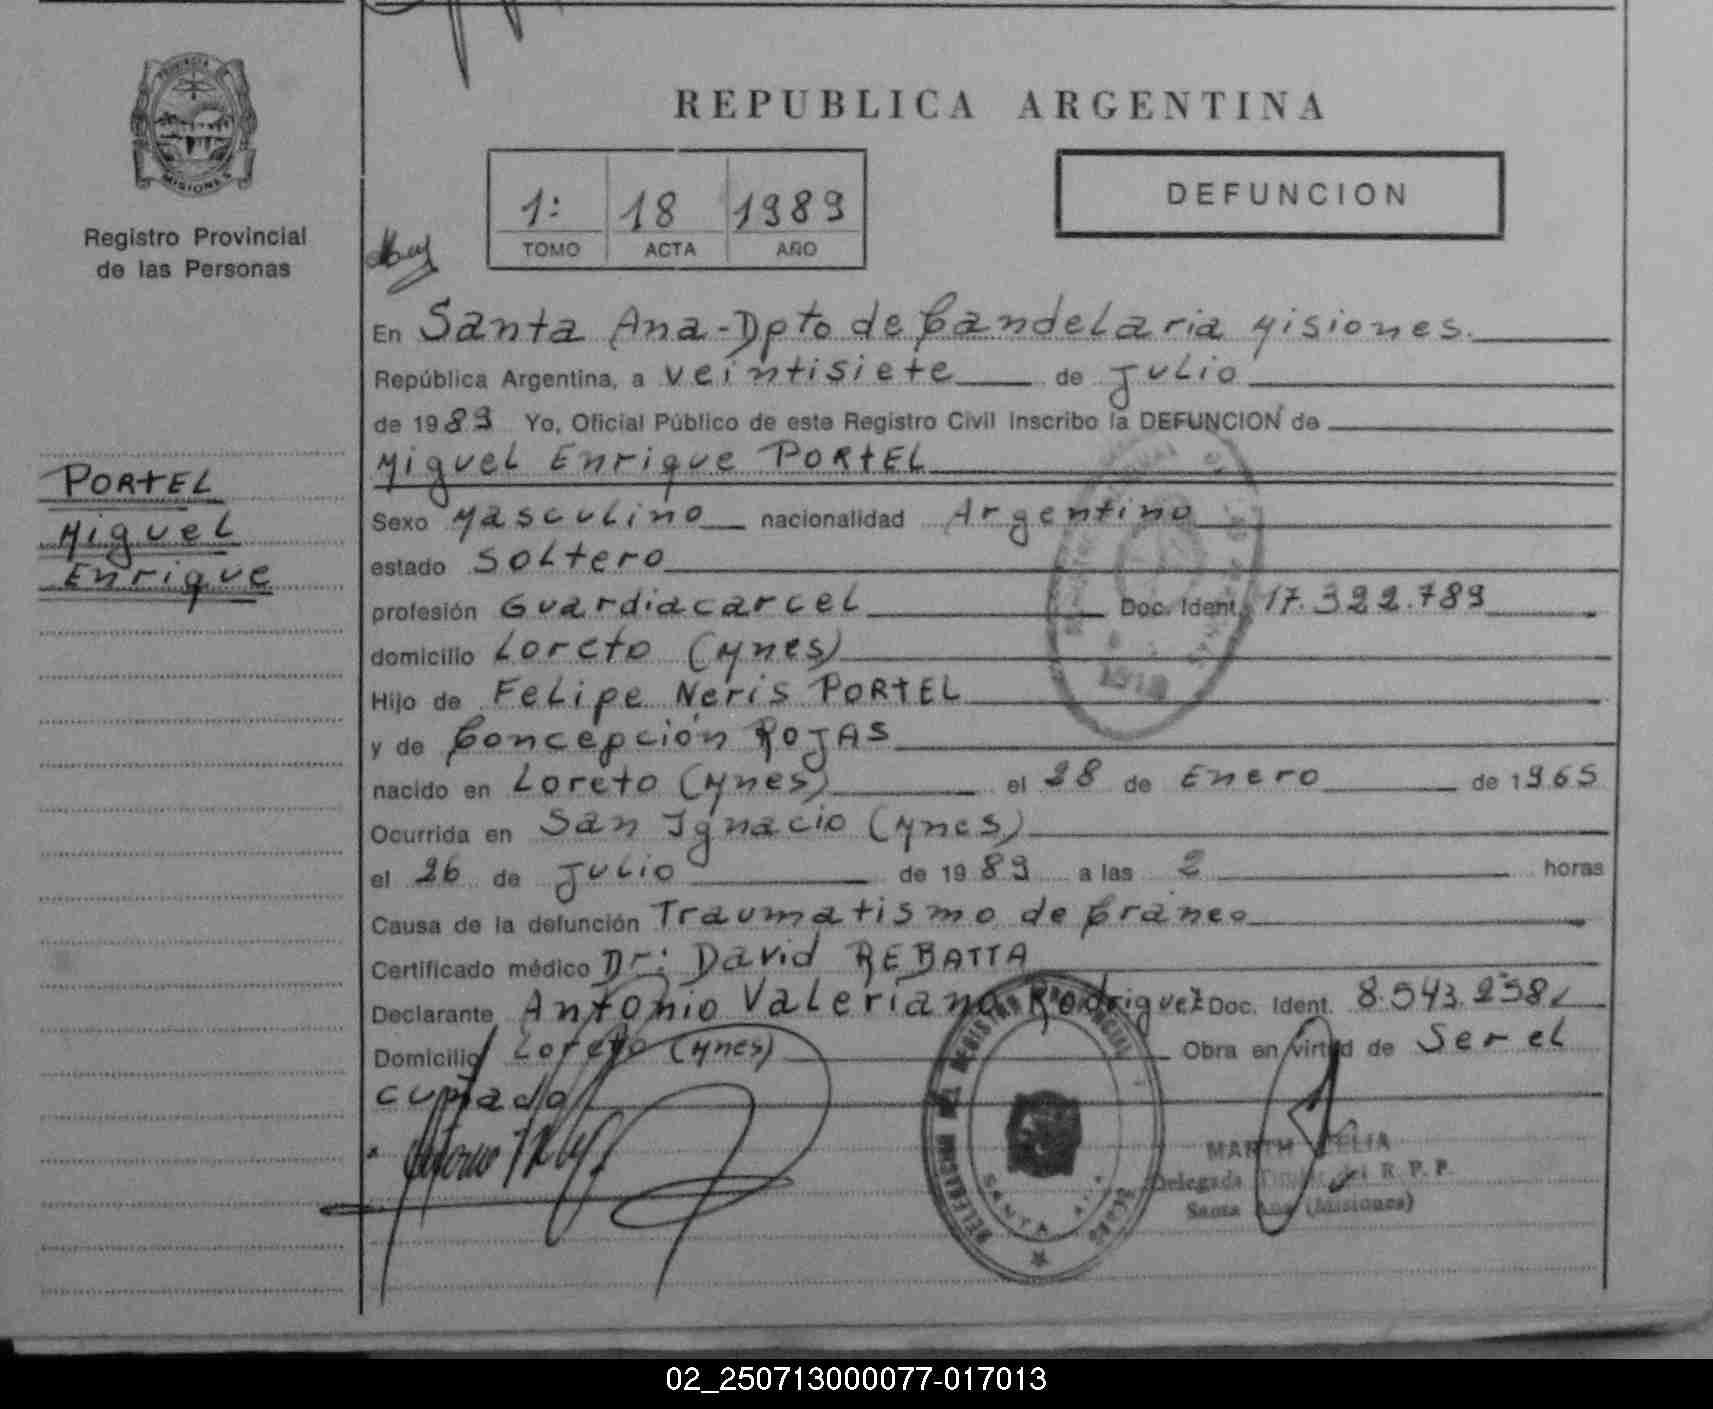 PROVINCIA DE
MISIONES
Registro Provincial
de las Personas
REPUBLICA ARGENTINA
1: 18 1989
TOMO ACTA AÑO
DEFUNCION
En Santa Ana-Dpto de Candelaria Misiones.
República Argentina, a veintisiete de Julio
de 1989 Yo, Oficial Público de este Registro Civil Inscribo la DEFUNCION de
Miguel Enrique PORTEL
PORTEL
Miguel
Enrique
Sexo Masculino nacionalidad Argentino
estado Soltero
profesión Guardiacarcel Doc. Ident. 17.322.789
domicilio Loreto (Mnes)
Hijo de Felipe Neris PORTEL
y de Concepción ROJAS
nacido en Loreto (Mnes) el 28 de Enero de 1965
Ocurrida en San Ignacio (Mnes)
el 26 de Julio de 1989 a las 2 horas
Causa de la defunción Traumatismo de Cráneo
Certificado médico Dr: David REBATTA
Declarante Antonio Valeriano Rodriguez Doc. Ident. 8.543.258
Domicilio Loreto (Mnes) Obra en virtud de Ser el
cuñado
DELEGACION DEL REGISTRO PROVINCIAL
SANTA ANA
Delegada Titular del R. P. P.
Santa Ana (Misiones)
02_250713000077-017013